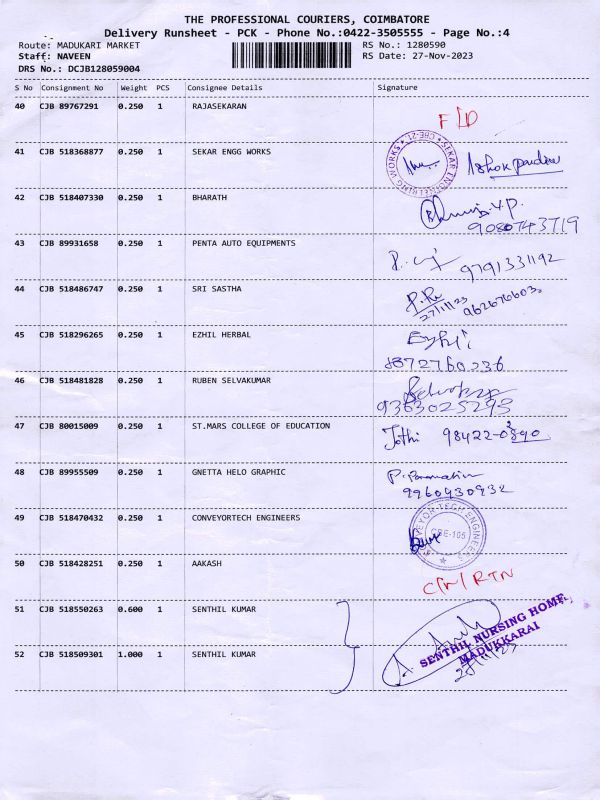 THE PROFESSIONAL COURIERS, COIMBATORE
Delivery Runsheet - PCK - Phone No.:0422-3505555 - Page No.:4
Route: MADUKARI MARKET RS No.: 1280590
Staff: NAVEEN RS Date: 27-Nov-2023
DRS No.: DCJB128059004
S No Consignment No Weight PCS Consignee Details Signature
40 CJB 89767291 0.250 1 RAJASEKARAN
F/D
41 CJB 518368877 0.250 1 SEKAR ENGG WORKS
SEKAR ENGINEERING WORKS ★ CBE-21 ★
Ashok pandian
42 CJB 518407330 0.250 1 BHARATH
V.P.
9080743719
43 CJB 89931658 0.250 1 PENTA AUTO EQUIPMENTS
9791331192
44 CJB 518486747 0.250 1 SRI SASTHA
27/11/23
45 CJB 518296265 0.250 1 EZHIL HERBAL
Ezhil
8872760236
46 CJB 518481828 0.250 1 RUBEN SELVAKUMAR
9363025293
47 CJB 80015009 0.250 1 ST.MARS COLLEGE OF EDUCATION
Jothi
48 CJB 89955509 0.250 1 GNETTA HELO GRAPHIC
9960430932
49 CJB 518470432 0.250 1 CONVEYORTECH ENGINEERS
CONVEYOR-TECH ENGINEERS ★ CBE-105
50 CJB 518428251 0.250 1 AAKASH
RTN
51 CJB 518550263 0.600 1 SENTHIL KUMAR
SENTHIL NURSING HOME,
MADUKKARAI
52 CJB 518509301 1.000 1 SENTHIL KUMAR